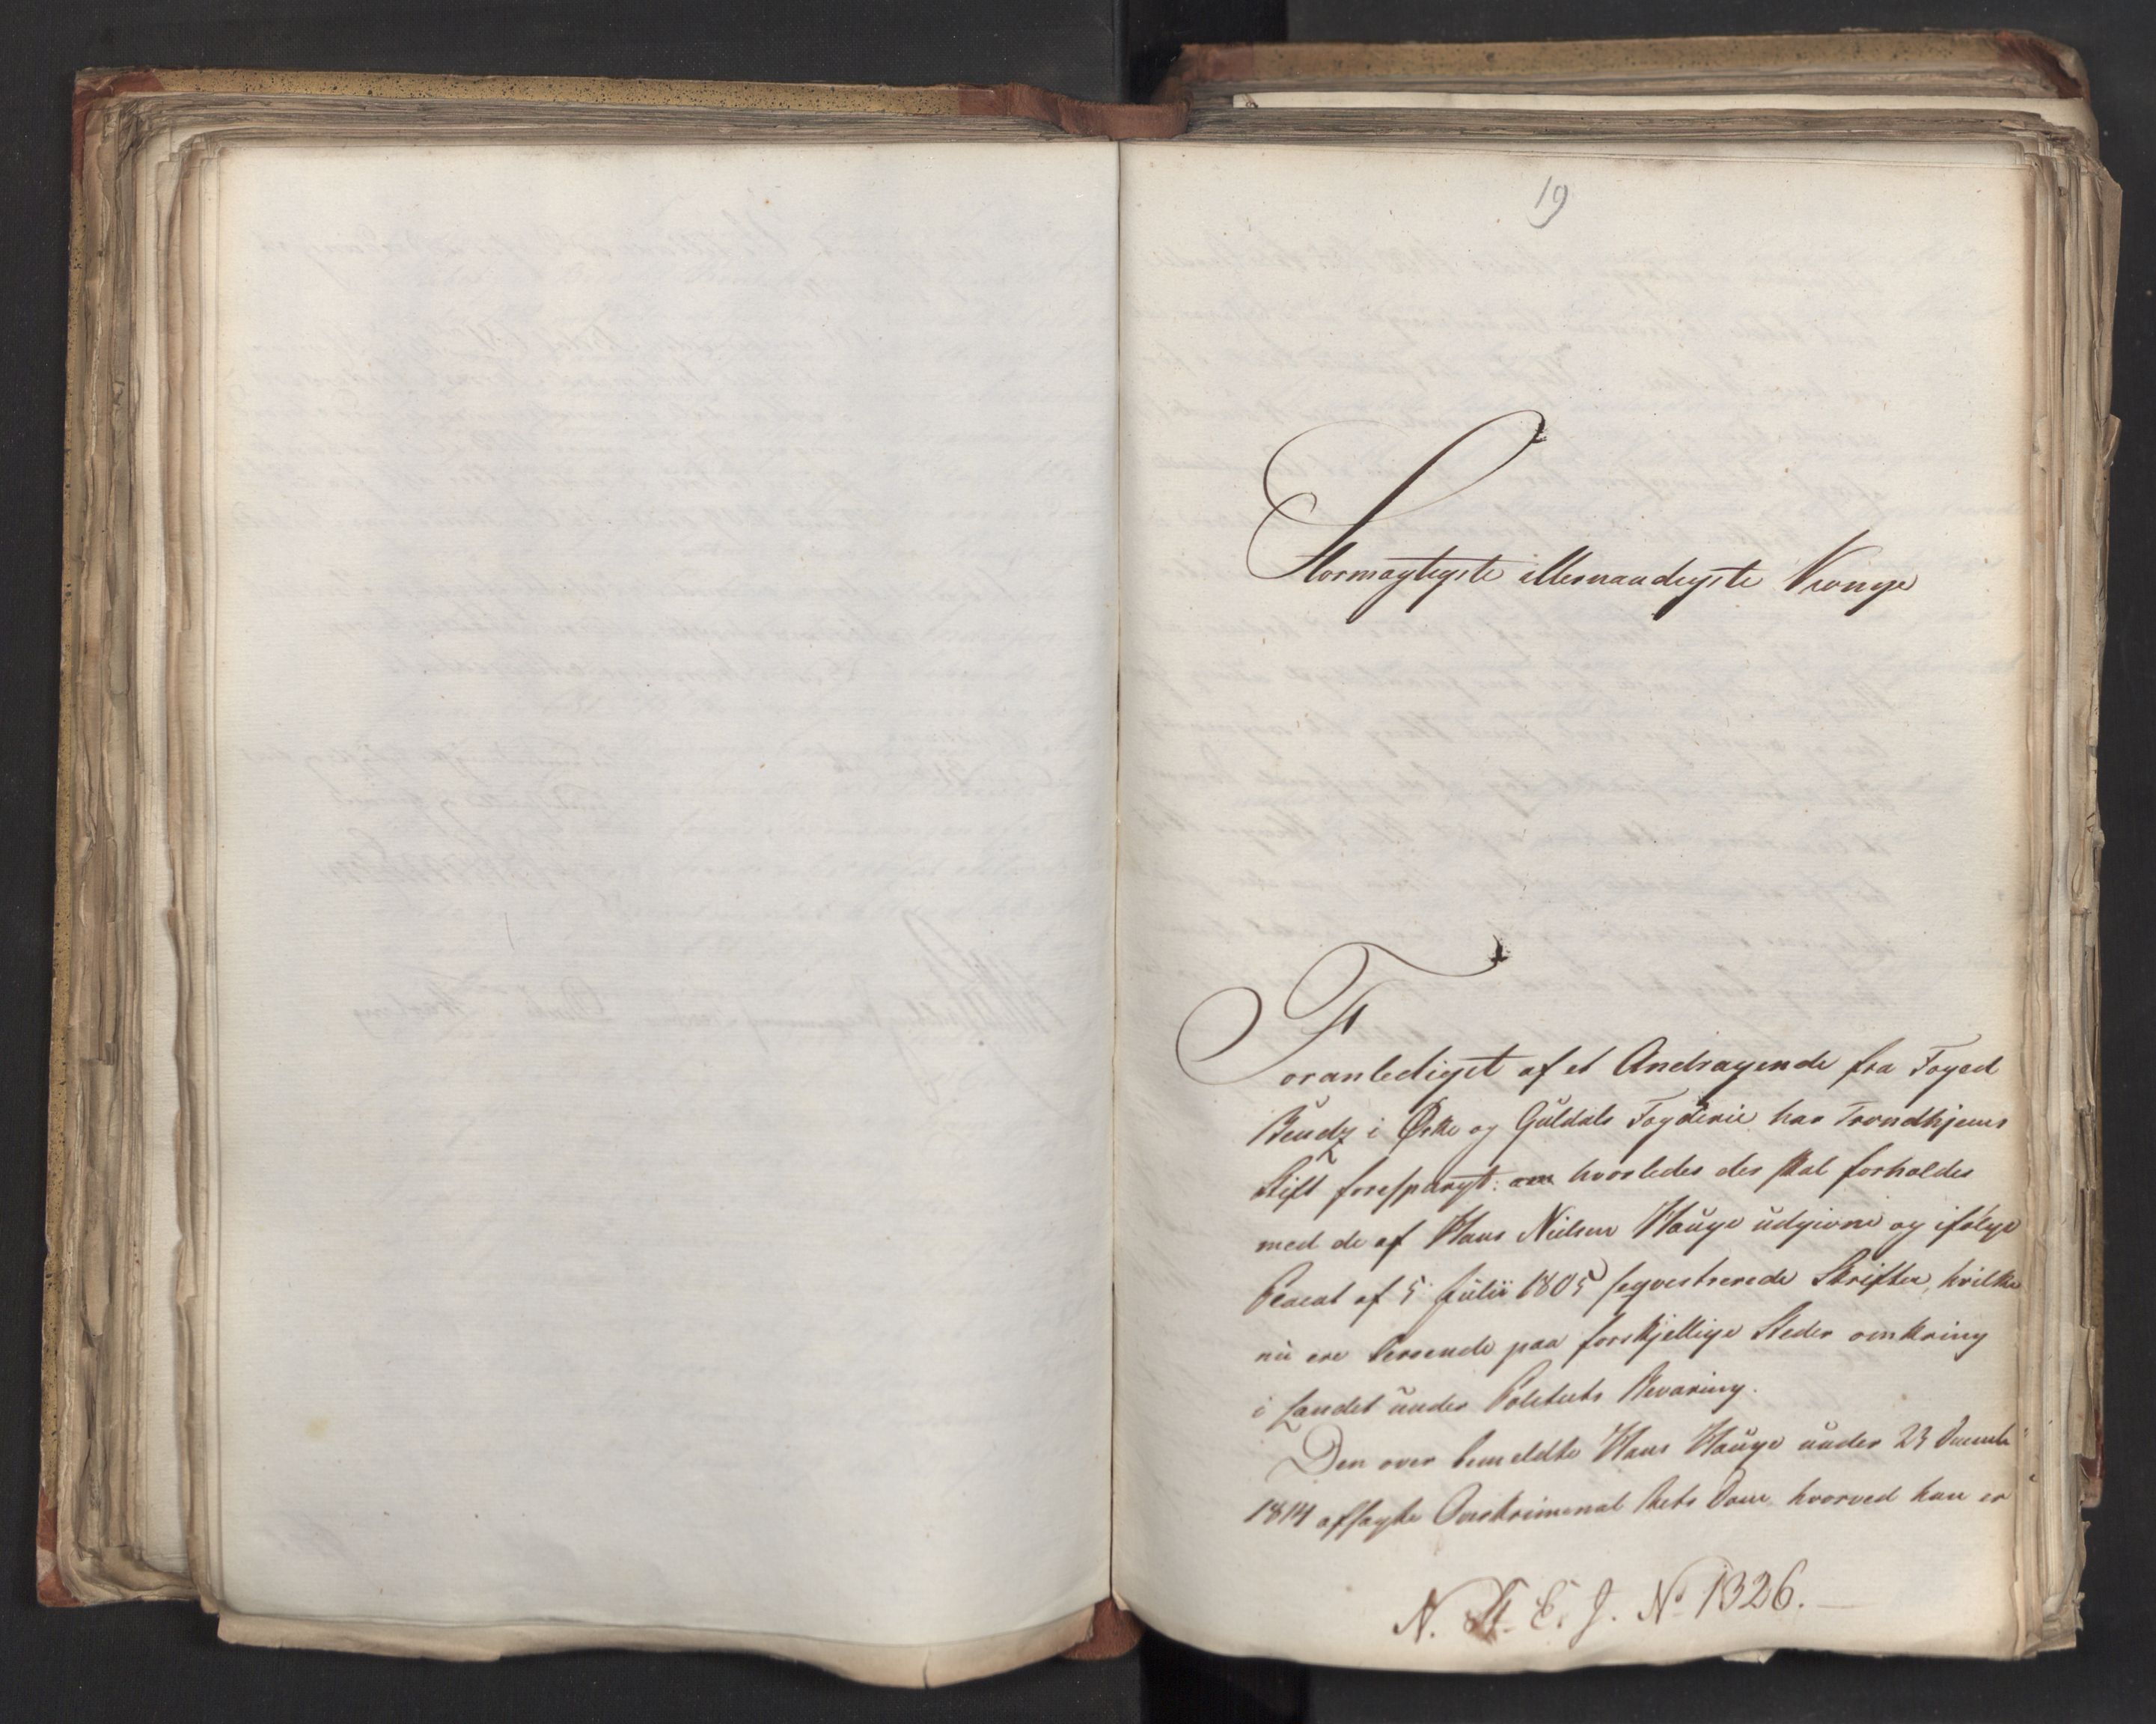 19
Stormægtigste allernaadigste Konge
Foranlediget af et Andragende fra Foged
Bendz i Ørke og Guldals Fogderie har Trondhjems
Stift forespurgt: om hvorledes der skal forholdes
med de af Hans Nielsen Hauge udgivne og ifølge
Placat af 5 Julii 1805 seqvestrerede Skrifter, hvilke
nu ere beroende paa forskjellige Steder omkring
i Landet under Politiets Bevaring.
Den over bemeldte Hans Hauge under 23 Decemb
1814 afsagte Overkriminal Rets Dom hvorved han er
N. H. E. J. No 1326.